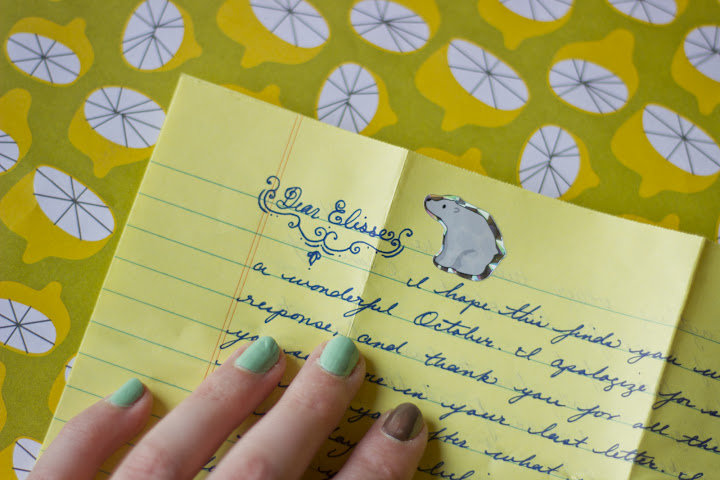 Dear Elisse
I hope this finds you
a wonderful October. I apologize for
response, and thank you for all the
in your last letter.
what